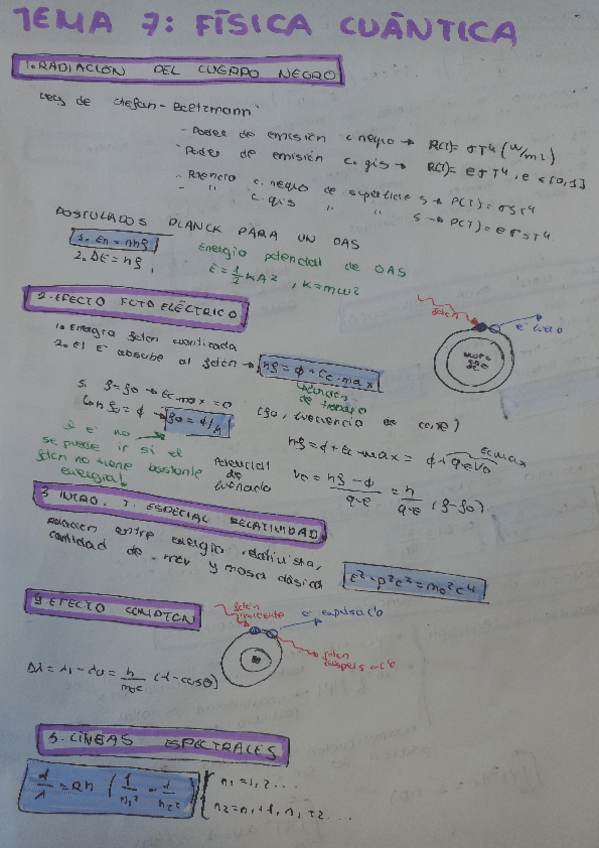 TEMA 7: FÍSICA CUÁNTICA
1. RADIACIÓN DEL CUERPO NEGRO
Ley de Stefan-Boltzmann:
- Poder de emisión c. negro → R(T) = σT⁴ (W/m²)
- Poder de emisión c. gris → R(T) = eσT⁴, e ∈ [0,1]
- Potencia c. negro de superficie S → P(T) = σST⁴
- " c. gris " " S → P(T) = eσST⁴
POSTULADOS PLANCK PARA UN OAS
1. En = nhf
2. ΔE = hf
Energía potencial de OAS
E = 1/2 KA², K = mω²
2. EFECTO FOTOELÉCTRICO
1. Energía fotón cuantizada
2. el e⁻ absorbe al fotón → hf = φ + Ec.max
función de trabajo
fotón
e⁻ libre
Si f = f0 → Ec.max = 0
Con hf0 = φ → f0 = φ/h
(f0, frecuencia de corte)
e⁻ no se puede ir si el fotón no tiene bastante energía!
hf = φ + Ec.max = φ + q·eV0
Ec max
Potencial de frenado
V0 = hf - φ / q·e = h / q·e (f - f0)
3. INTRO. T. ESPECIAL RELATIVIDAD
Relación entre energía relativista,
cantidad de mov y masa clásica
E² - p²c² = m0²c⁴
4. EFECTO COMPTON
fotón incidente
e⁻ expulsado
fotón dispersado
Δλ = λ1 - λ0 = h/m0c (1 - cosθ)
5. LÍNEAS ESPECTRALES
1/λ = RH (1/n1² - 1/n2²)
n1 = 1, 2 ...
n2 = n1+1, n1+2 ...